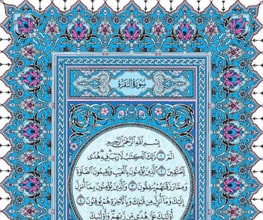 سُورَةُ البَقَرَةِ
بِسْمِ اللَّهِ الرَّحْمَٰنِ الرَّحِيمِ
الٓمٓ ۝ ذَٰلِكَ الْكِتَٰبُ لَا رَيْبَ فِيهِ هُدًى
لِّلْمُتَّقِينَ ۝ الَّذِينَ يُؤْمِنُونَ بِالْغَيْبِ وَيُقِيمُونَ الصَّلَوٰةَ
وَمِمَّا رَزَقْنَٰهُمْ يُنفِقُونَ ۝ وَالَّذِينَ يُؤْمِنُونَ بِمَا أُنزِلَ
إِلَيْكَ وَمَا أُنزِلَ مِن قَبْلِكَ وَبِالْآخِرَةِ هُمْ يُوقِنُونَ ۝
أُولَٰئِكَ عَلَىٰ هُدًى مِّن رَّبِّهِمْ وَأُولَٰئِكَ